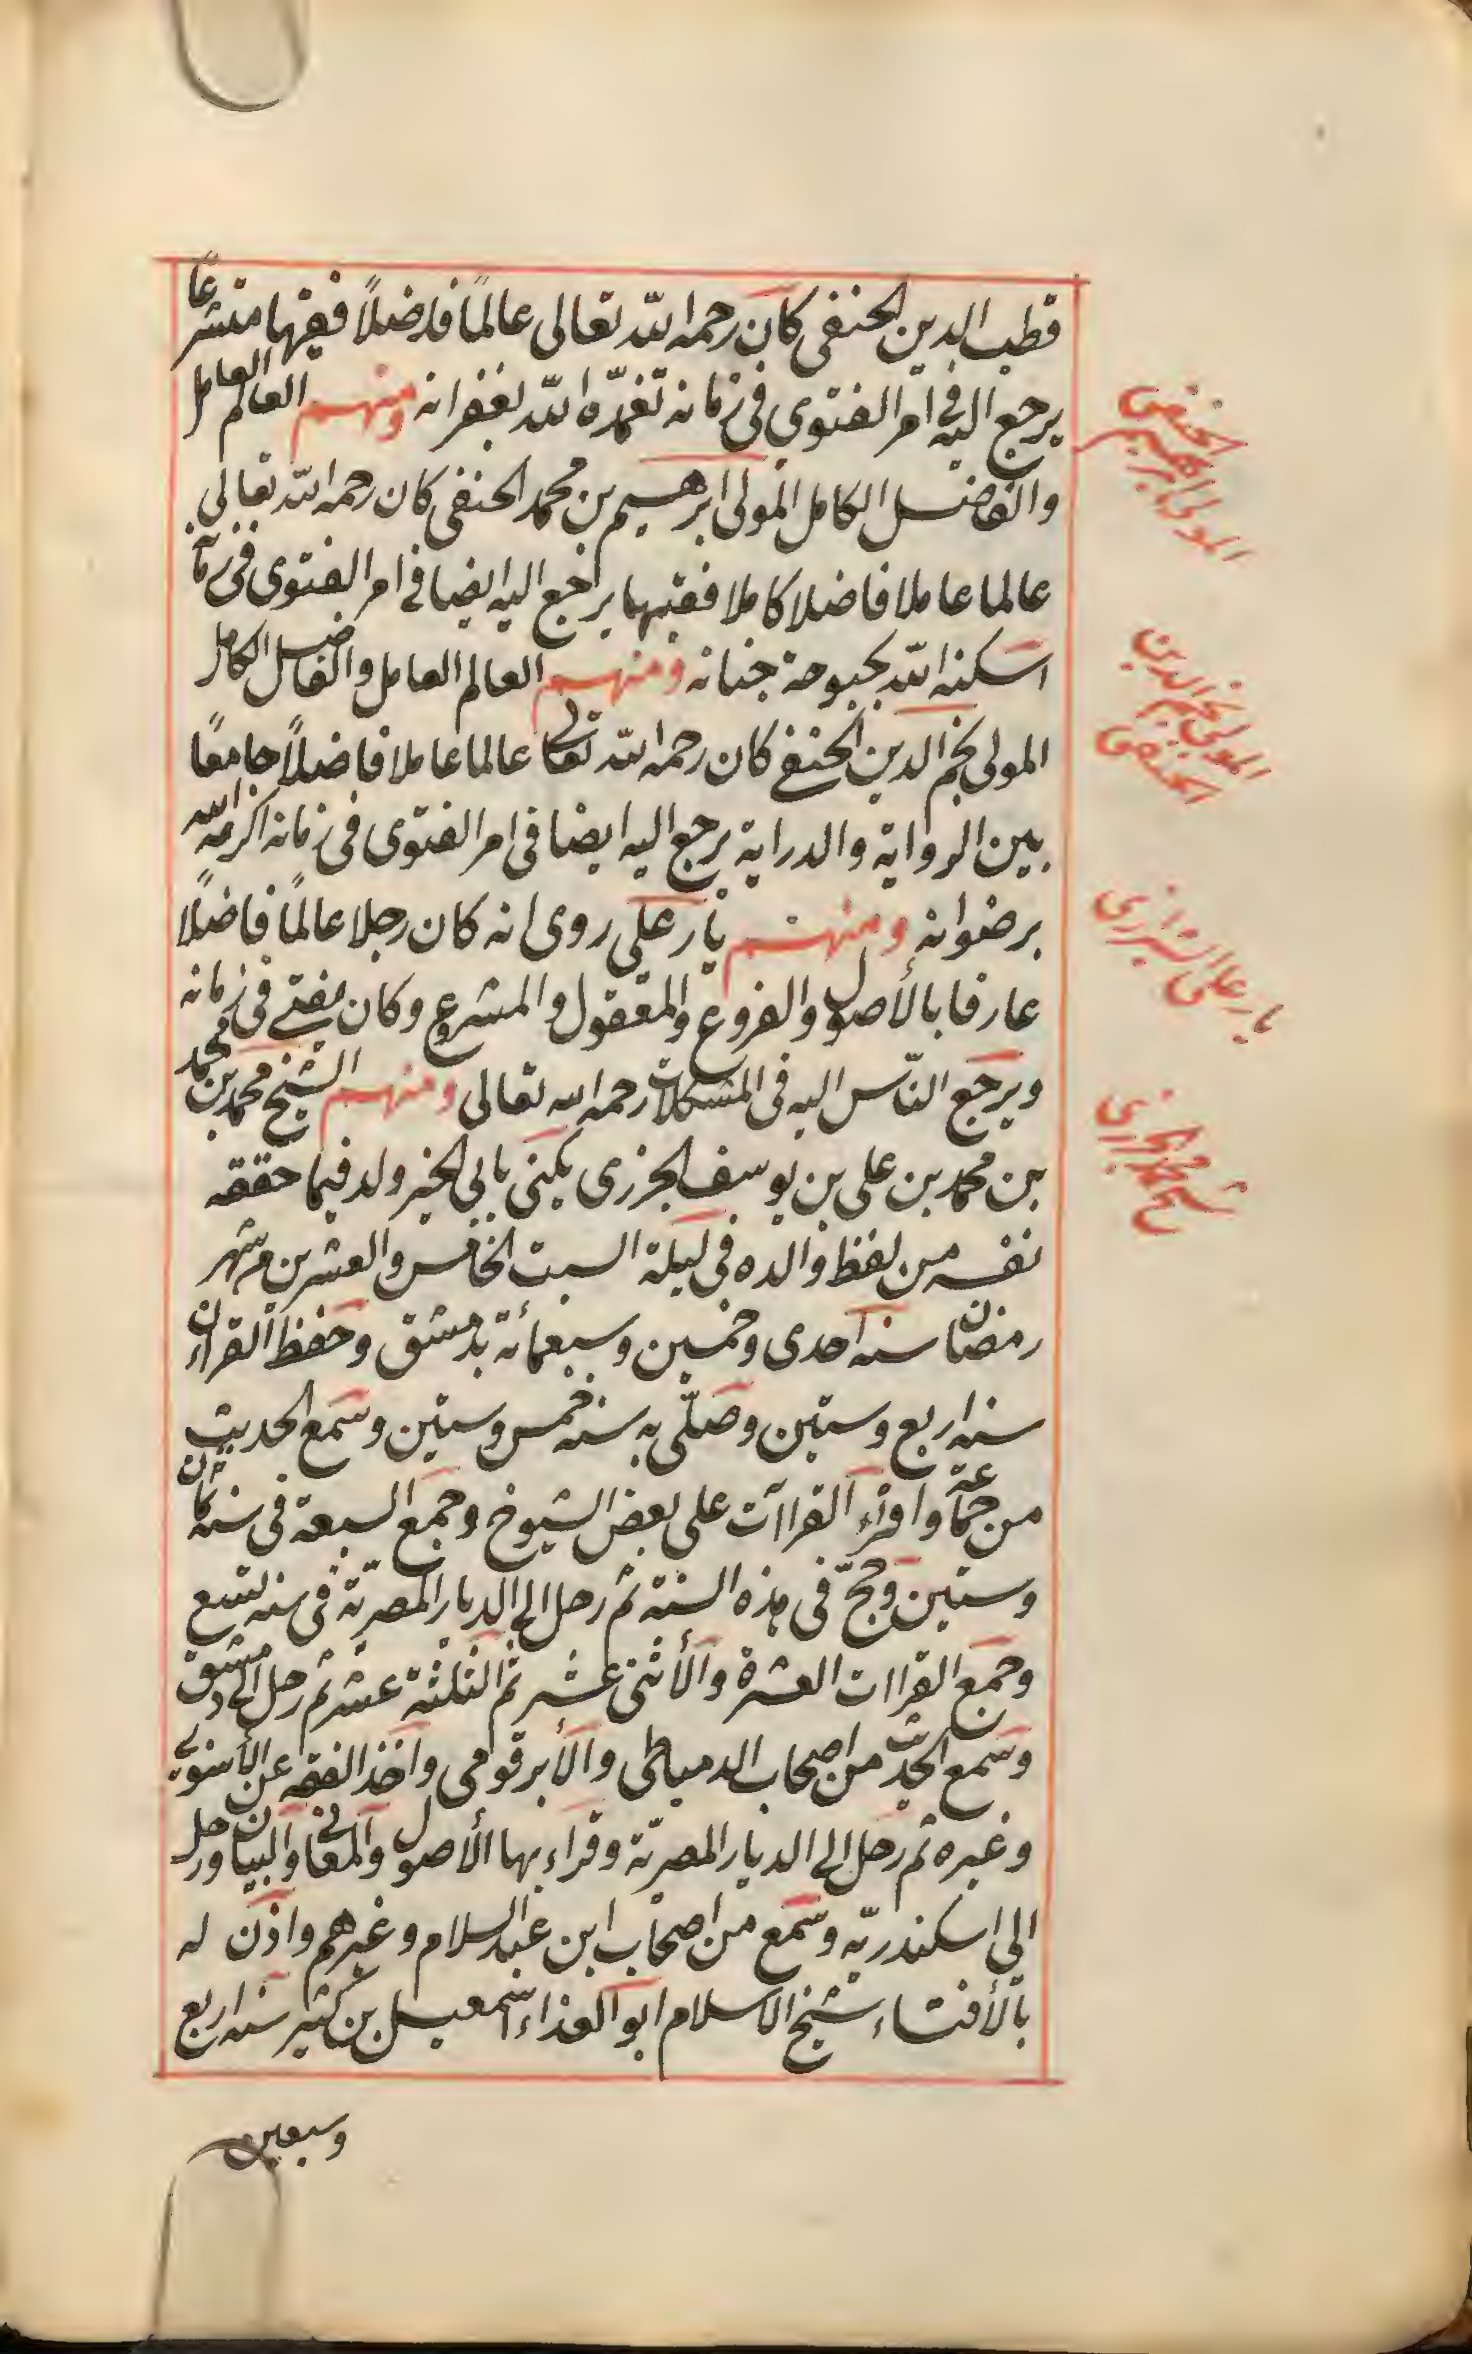 قطب الدين الحنفى كان رحمه الله تعالى عالمًا فاضلًا فقيها متشرعًا
يرجع اليه فى امر الفتوى فى زمانه تغمّده الله بغفرانه ومنهم العالم العامل
والفاضل الكامل المولى ابرهيم بن محمد الحنفى كان رحمه الله تعالى
عالما عاملا فاضلا كاملا فقيها يرجع اليه ايضا فى امر الفتوى فى زمانه
اسكنه الله بحبوحة جنانه ومنهم العالم العامل والفاضل الكامل
المولى نجم الدين الحنفى كان رحمه الله تعالى عالما عاملا فاضلًا جامعًا
بين الرواية والدراية يرجع اليه ايضا فى امر الفتوى فى زمانه اكرمه الله
برضوانه ومنهم يار على روى انه كان رجلا عالمًا فاضلًا
عارفا بالأصول والفروع والمعقول والمشروع وكان يفتى فى زمانه
ويرجع النّاس اليه فى المشكلات رحمه الله تعالى ومنهم الشيخ محمد بن محمد
بن محمد بن على بن يوسف الجزرى يكنى بابى الخير ولد فيما حققه
نفسه من لفظ والده فى ليلة السبت الخامس والعشرين من شهر
رمضان سنه احدى وخمسين وسبعمائة بدمشق وحفظ القرآن
سنه اربع وستين وصلّى به سنه خمس وستين وسمع الحديث
من جماعة واقراء القراآت على بعض الشيوخ وجمع السبعة فى سنه ثمان
وستين وحجّ فى هذه السنة ثم رحل الى الديار المصريّة فى سنه تسع
وجمع القراات العشرة والأثنى عشر ثم الثلثة عشر ثم رحل الى دمشق
وسمع الحديث من اصحاب الدمياطى والأبرقومى واخذ الفقه عن الأسنوى
وغيره ثم رحل الى الديار المصريّة وقراء بها الأصول والمعانى والبيان ورحل
الى اسكندريّه وسمع من اصحاب ابن عبد السلام وغيرهم واذن له
بالأفتاء شيخ الاسلام ابو الفداء اسمعيل بن كثير سنه اربع
وسبعين
المولى ابرهيم
الحنفى
المولى نجم الدين
الحنفى
يار على الشيرازى
شيخ محمد الجزرى